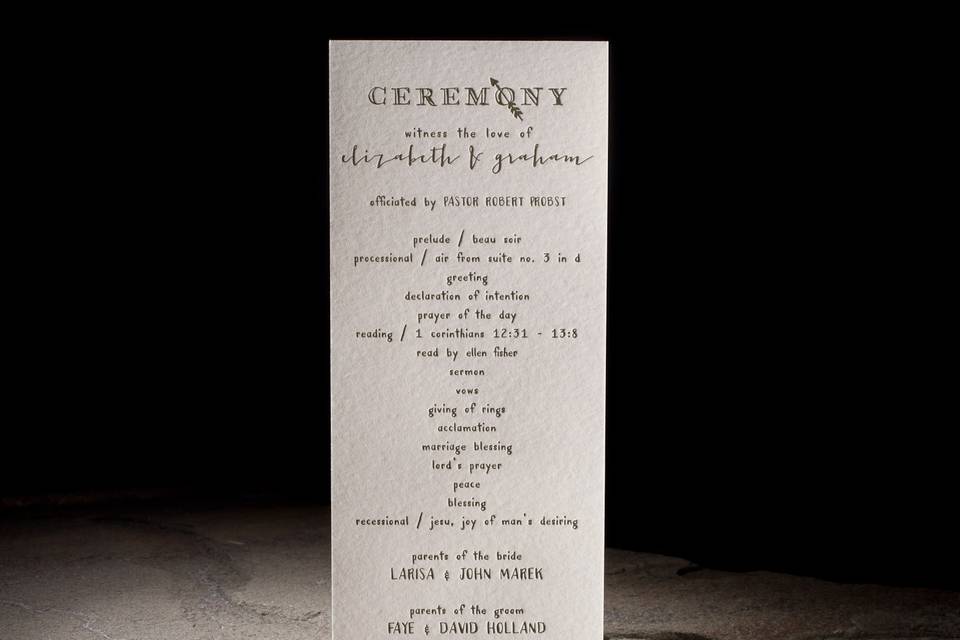 CEREMONY
witness the love of
elizabeth & graham
officiated by PASTOR ROBERT PROBST
prelude / beau soir
processional / air from suite no. 3 in d
greeting
declaration of intention
prayer of the day
reading / 1 corinthians 12:31 - 13:8
read by ellen fisher
sermon
vows
giving of rings
acclamation
marriage blessing
lord's prayer
peace
blessing
recessional / jesu, joy of man's desiring
parents of the bride
LARISA & JOHN MAREK
parents of the groom
FAYE & DAVID HOLLAND